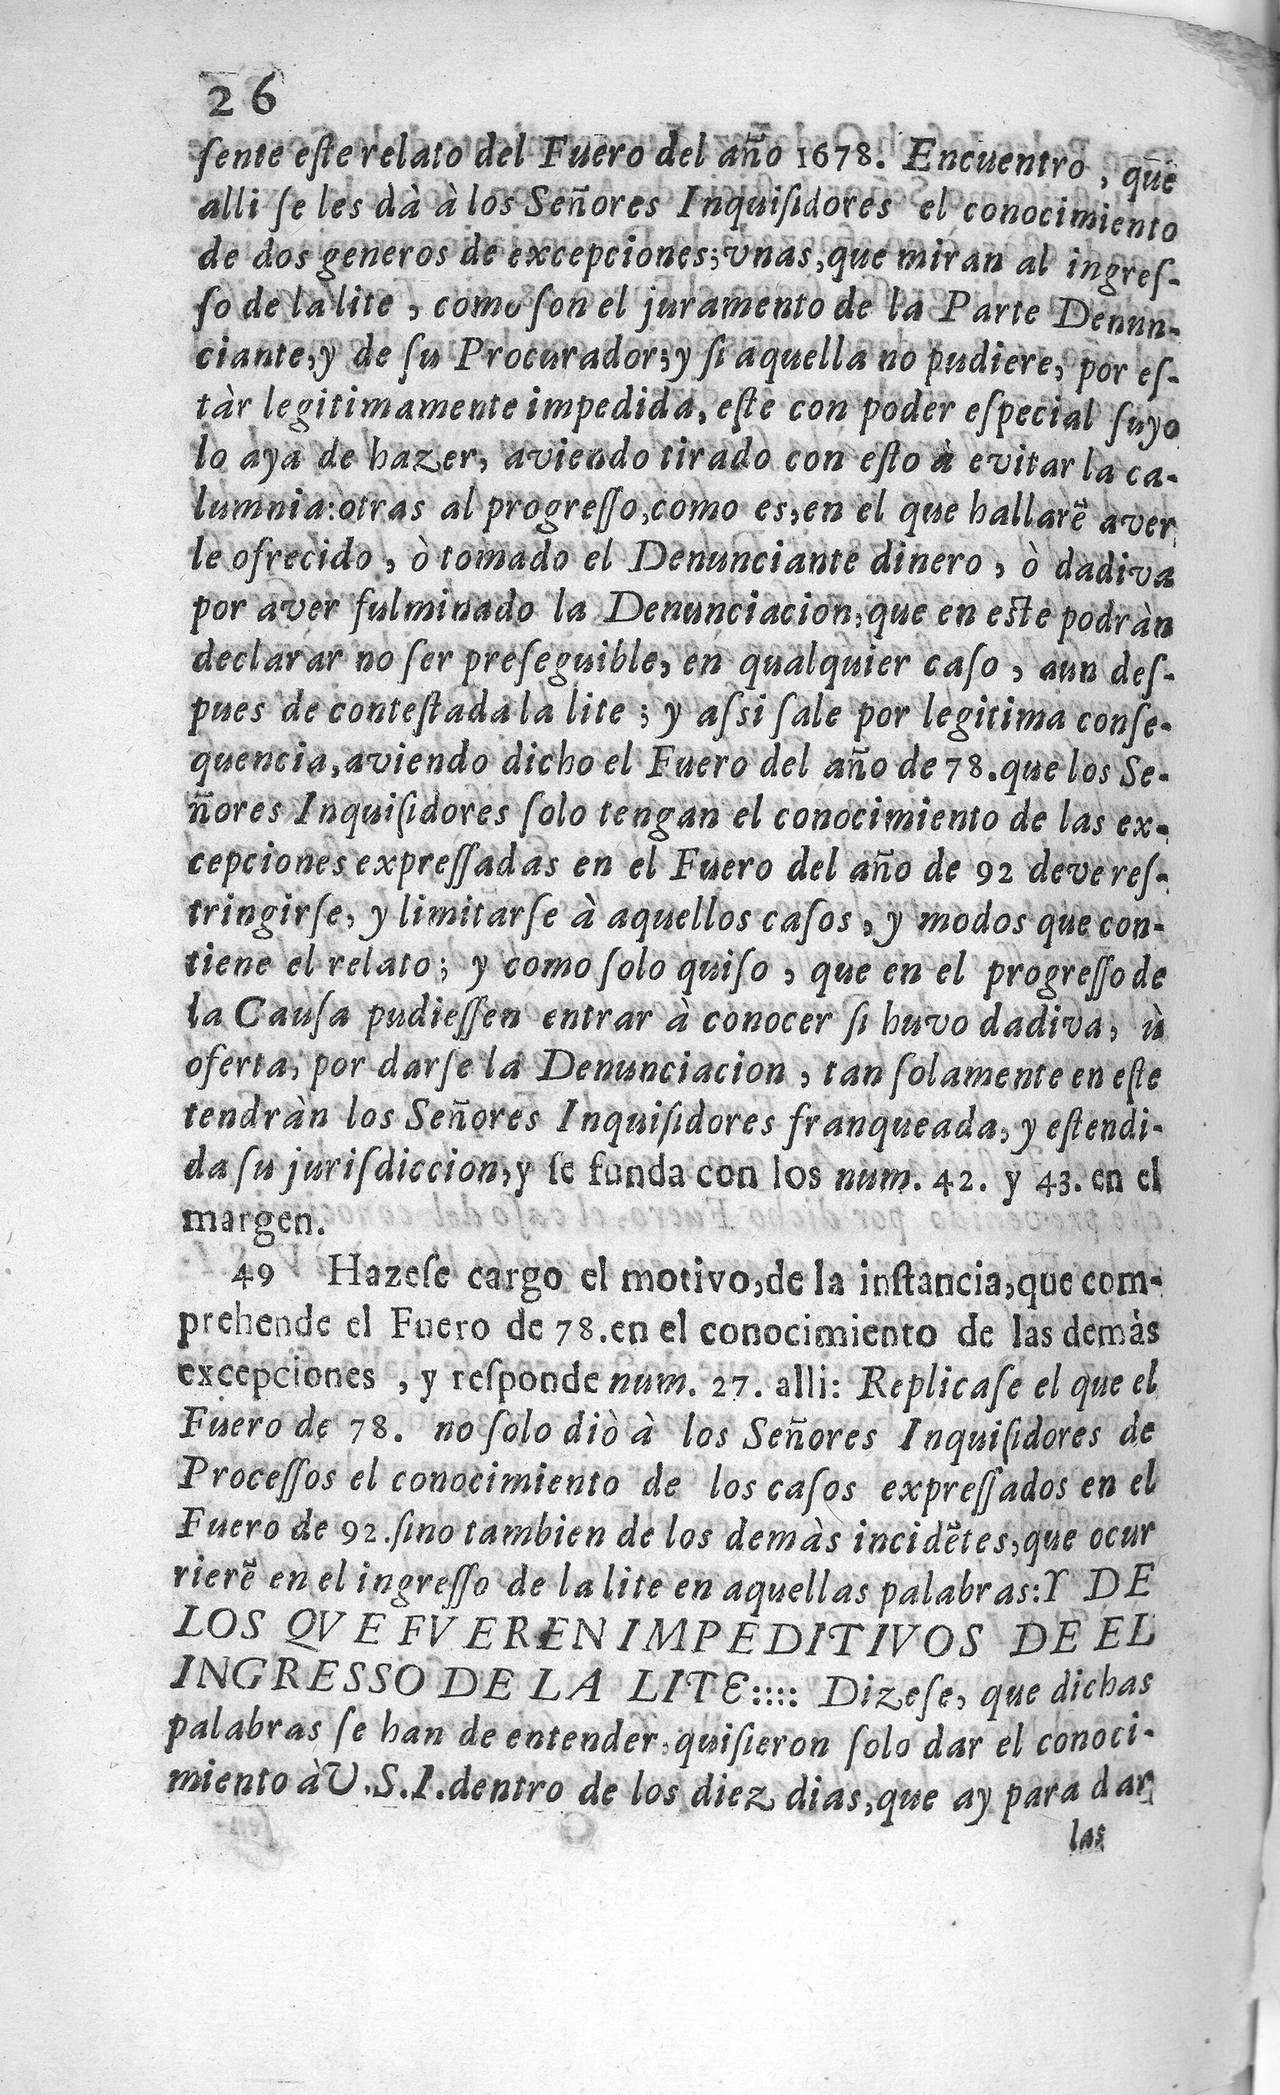 26
sente este relato del Fuero del año 1678. Encuentro, que
alli se les dà à los Señores Inquisidores el conocimiento
de dos generos de excepciones; vnas, que miran al ingres-
so de la lite, como son el juramento de la Parte Denun-
ciante, y de su Procurador; y si aquella no pudiere, por es-
tàr legitimamente impedida, este con poder especial suyo
lo aya de hazer, aviendo tirado con esto à evitar la ca-
lumnia: otras al progresso, como es, en el que hallarẽ aver
le ofrecido, ò tomado el Denunciante dinero, ò dadiva
por aver fulminado la Denunciacion, que en este podràn
declarar no ser preseguible, en qualquier caso, aun des-
pues de contestada la lite; y assi sale por legitima conse-
quencia, aviendo dicho el Fuero del año de 78. que los Se-
ñores Inquisidores solo tengan el conocimiento de las ex-
cepciones expressadas en el Fuero del año de 92 deve res-
tringirse, y limitarse à aquellos casos, y modos que con-
tiene el relato; y como solo quiso, que en el progresso de
la Causa pudiessen entrar à conocer si huvo dadiva, ù
oferta, por darse la Denunciacion, tan solamente en este
tendràn los Señores Inquisidores franqueada, y estendi-
da su jurisdiccion, y se funda con los num. 42. y 43. en el
margen.
49 Hazese cargo el motivo, de la instancia, que com-
prehende el Fuero de 78. en el conocimiento de las demàs
excepciones, y responde num. 27. alli: Replicase el que el
Fuero de 78. no solo diò à los Señores Inquisidores de
Processos el conocimiento de los casos expressados en el
Fuero de 92. sino tambien de los demàs incidẽtes, que ocur
rierẽ en el ingresso de la lite en aquellas palabras: Y DE
LOS QVE FVEREN IMPEDITIVOS DE EL
INGRESSO DE LA LITE:::: Dizese, que dichas
palabras se han de entender, quisieron solo dar el conoci-
miento à V.S.I. dentro de los diez dias, que ay para dar
las